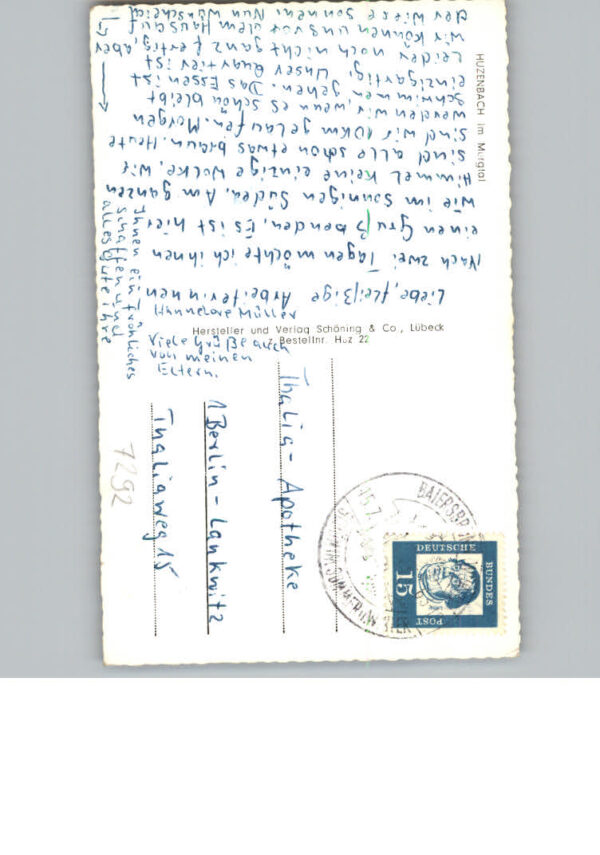 HUZENBACH im Murgtal
Liebe, fleißige Arbeiterinnen
Nach zwei Tagen möchte ich ihnen
einen Gruß senden. Es ist hier
wie im sonnigen Süden. Am ganzen
Himmel keine einzige Wolke. Wir
sind alle schon etwas braun. Heute
sind wir 10km gelaufen. Morgen
werden wir, wenn es schön bleibt
schwimmen gehen. Das Essen ist
einzigartig. Unser Quartier ist
leider noch nicht ganz fertig, aber
wir können uns vor dem Haus auf
der Wiese sonnen. Nun wünsche ich
Ihnen ein fröhliches
Schaffen und
alles Gute ihre
Hannelore Müller
Viele Grüße auch
von meinen
Eltern.
Hersteller und Verlag Schöning & Co., Lübeck
Bestellnr. Huz 22
Thalia-Apotheke
1 Berlin-Lankwitz
Thaliaweg 15
7292
BAIERSBRONN
15.7.
IM SOMMER U. WINTER
DEUTSCHE
BUNDES
POST
15